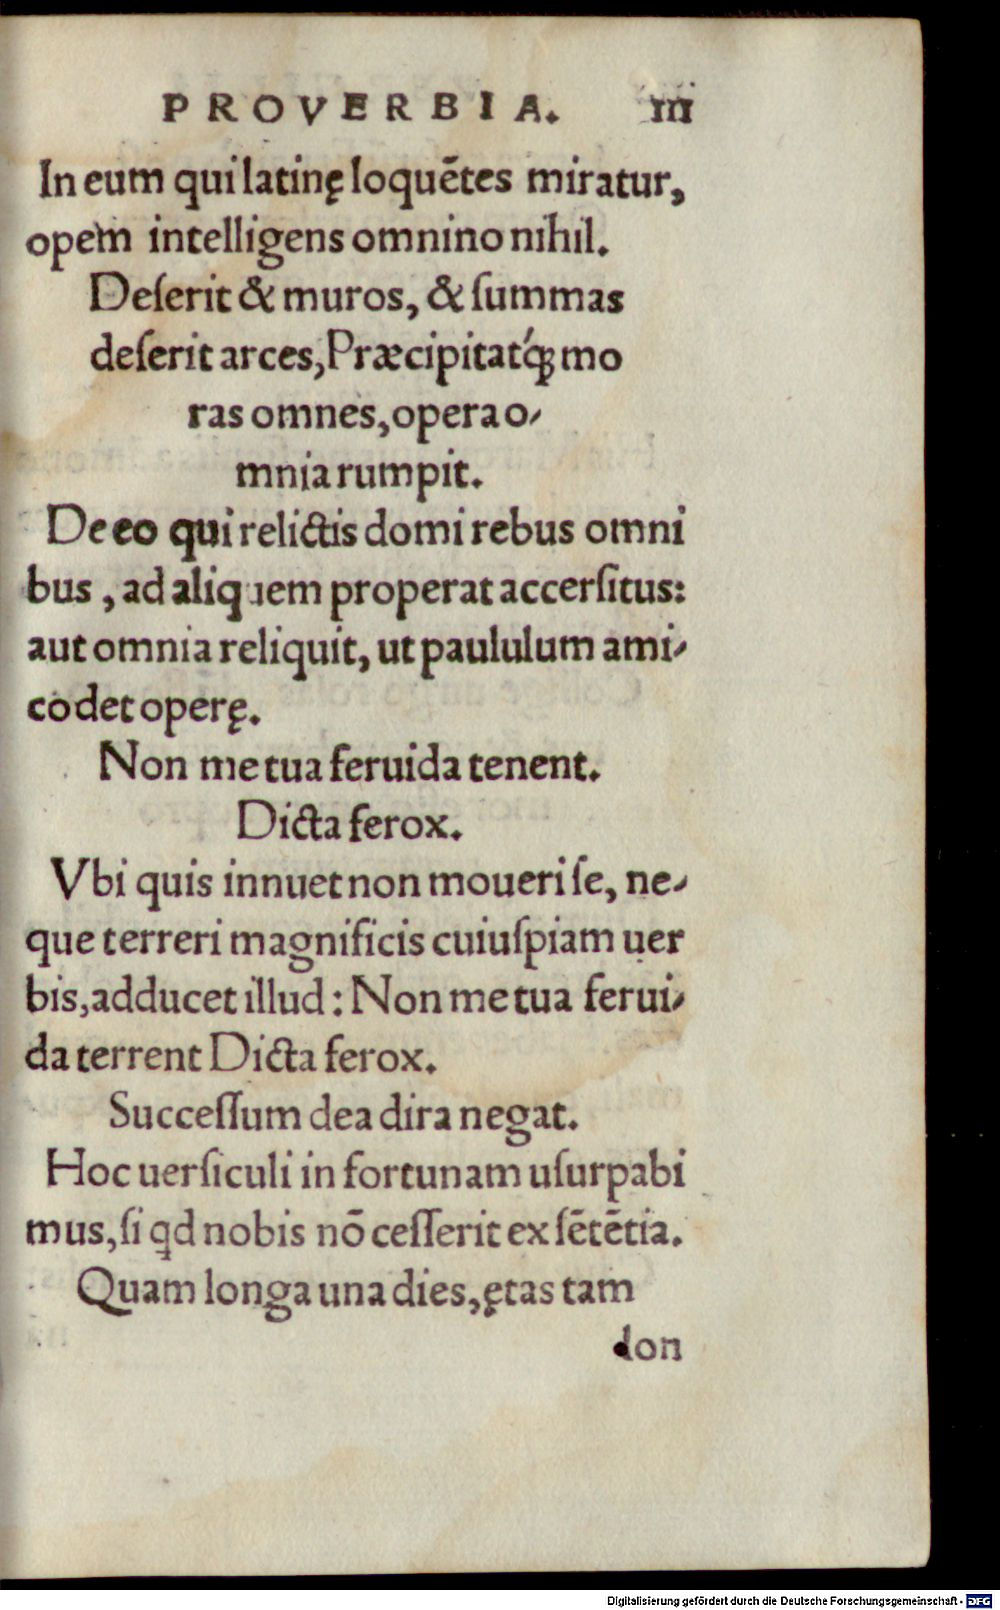 PROVERBIA. III
In eum qui latinę loquẽtes miratur,
opem intelligens omnino nihil.
Deſerit & muros, & ſummas
deſerit arces, Præcipitatq́ꝫ mo
ras omnes, opera o-
mnia rumpit.
De eo qui relictis domi rebus omni
bus, ad aliquem properat accerſitus:
aut omnia reliquit, ut paululum ami-
co det operę.
Non me tua feruida tenent.
Dicta ferox.
Vbi quis innuet non moueri ſe, ne-
que terreri magnificis cuiuſpiam uer
bis, adducet illud: Non me tua ferui-
da terrent Dicta ferox.
Succeſſum dea dira negat.
Hoc uerſiculi in fortunam uſurpabi
mus, ſi qd nobis nõ ceſſerit ex ſẽtẽtia.
Quam longa una dies, ętas tam
lon
Digitalisierung gefördert durch die Deutsche Forschungsgemeinschaft - DFG